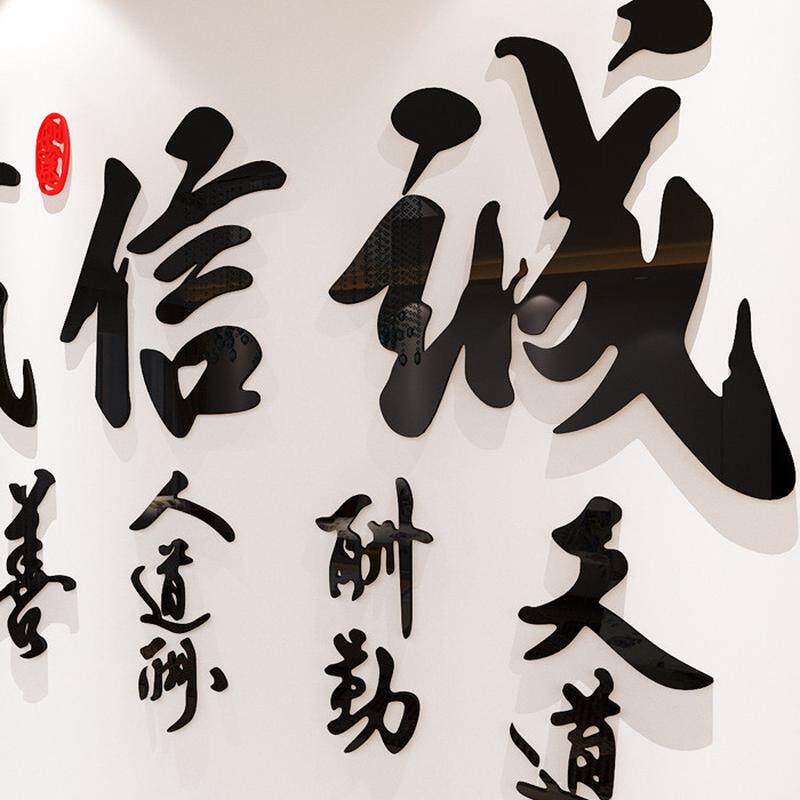 诚信
天道
酬勤
人道酬
善